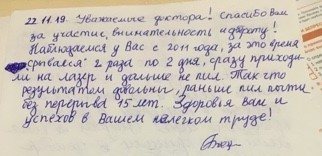 22.11.19. Уважаемые доктора! Спасибо Вам
за участие, внимательность и доброту!
Наблюдаемся у Вас с 2011 года, за это время
срывался 2 раза по 2 дня, сразу приходи-
ли на лазер и дальше не пил. Так что
результатом довольны, раньше пил почти
без перерыва 15 лет. Здоровья Вам и
успехов в Вашем нелегком труде!